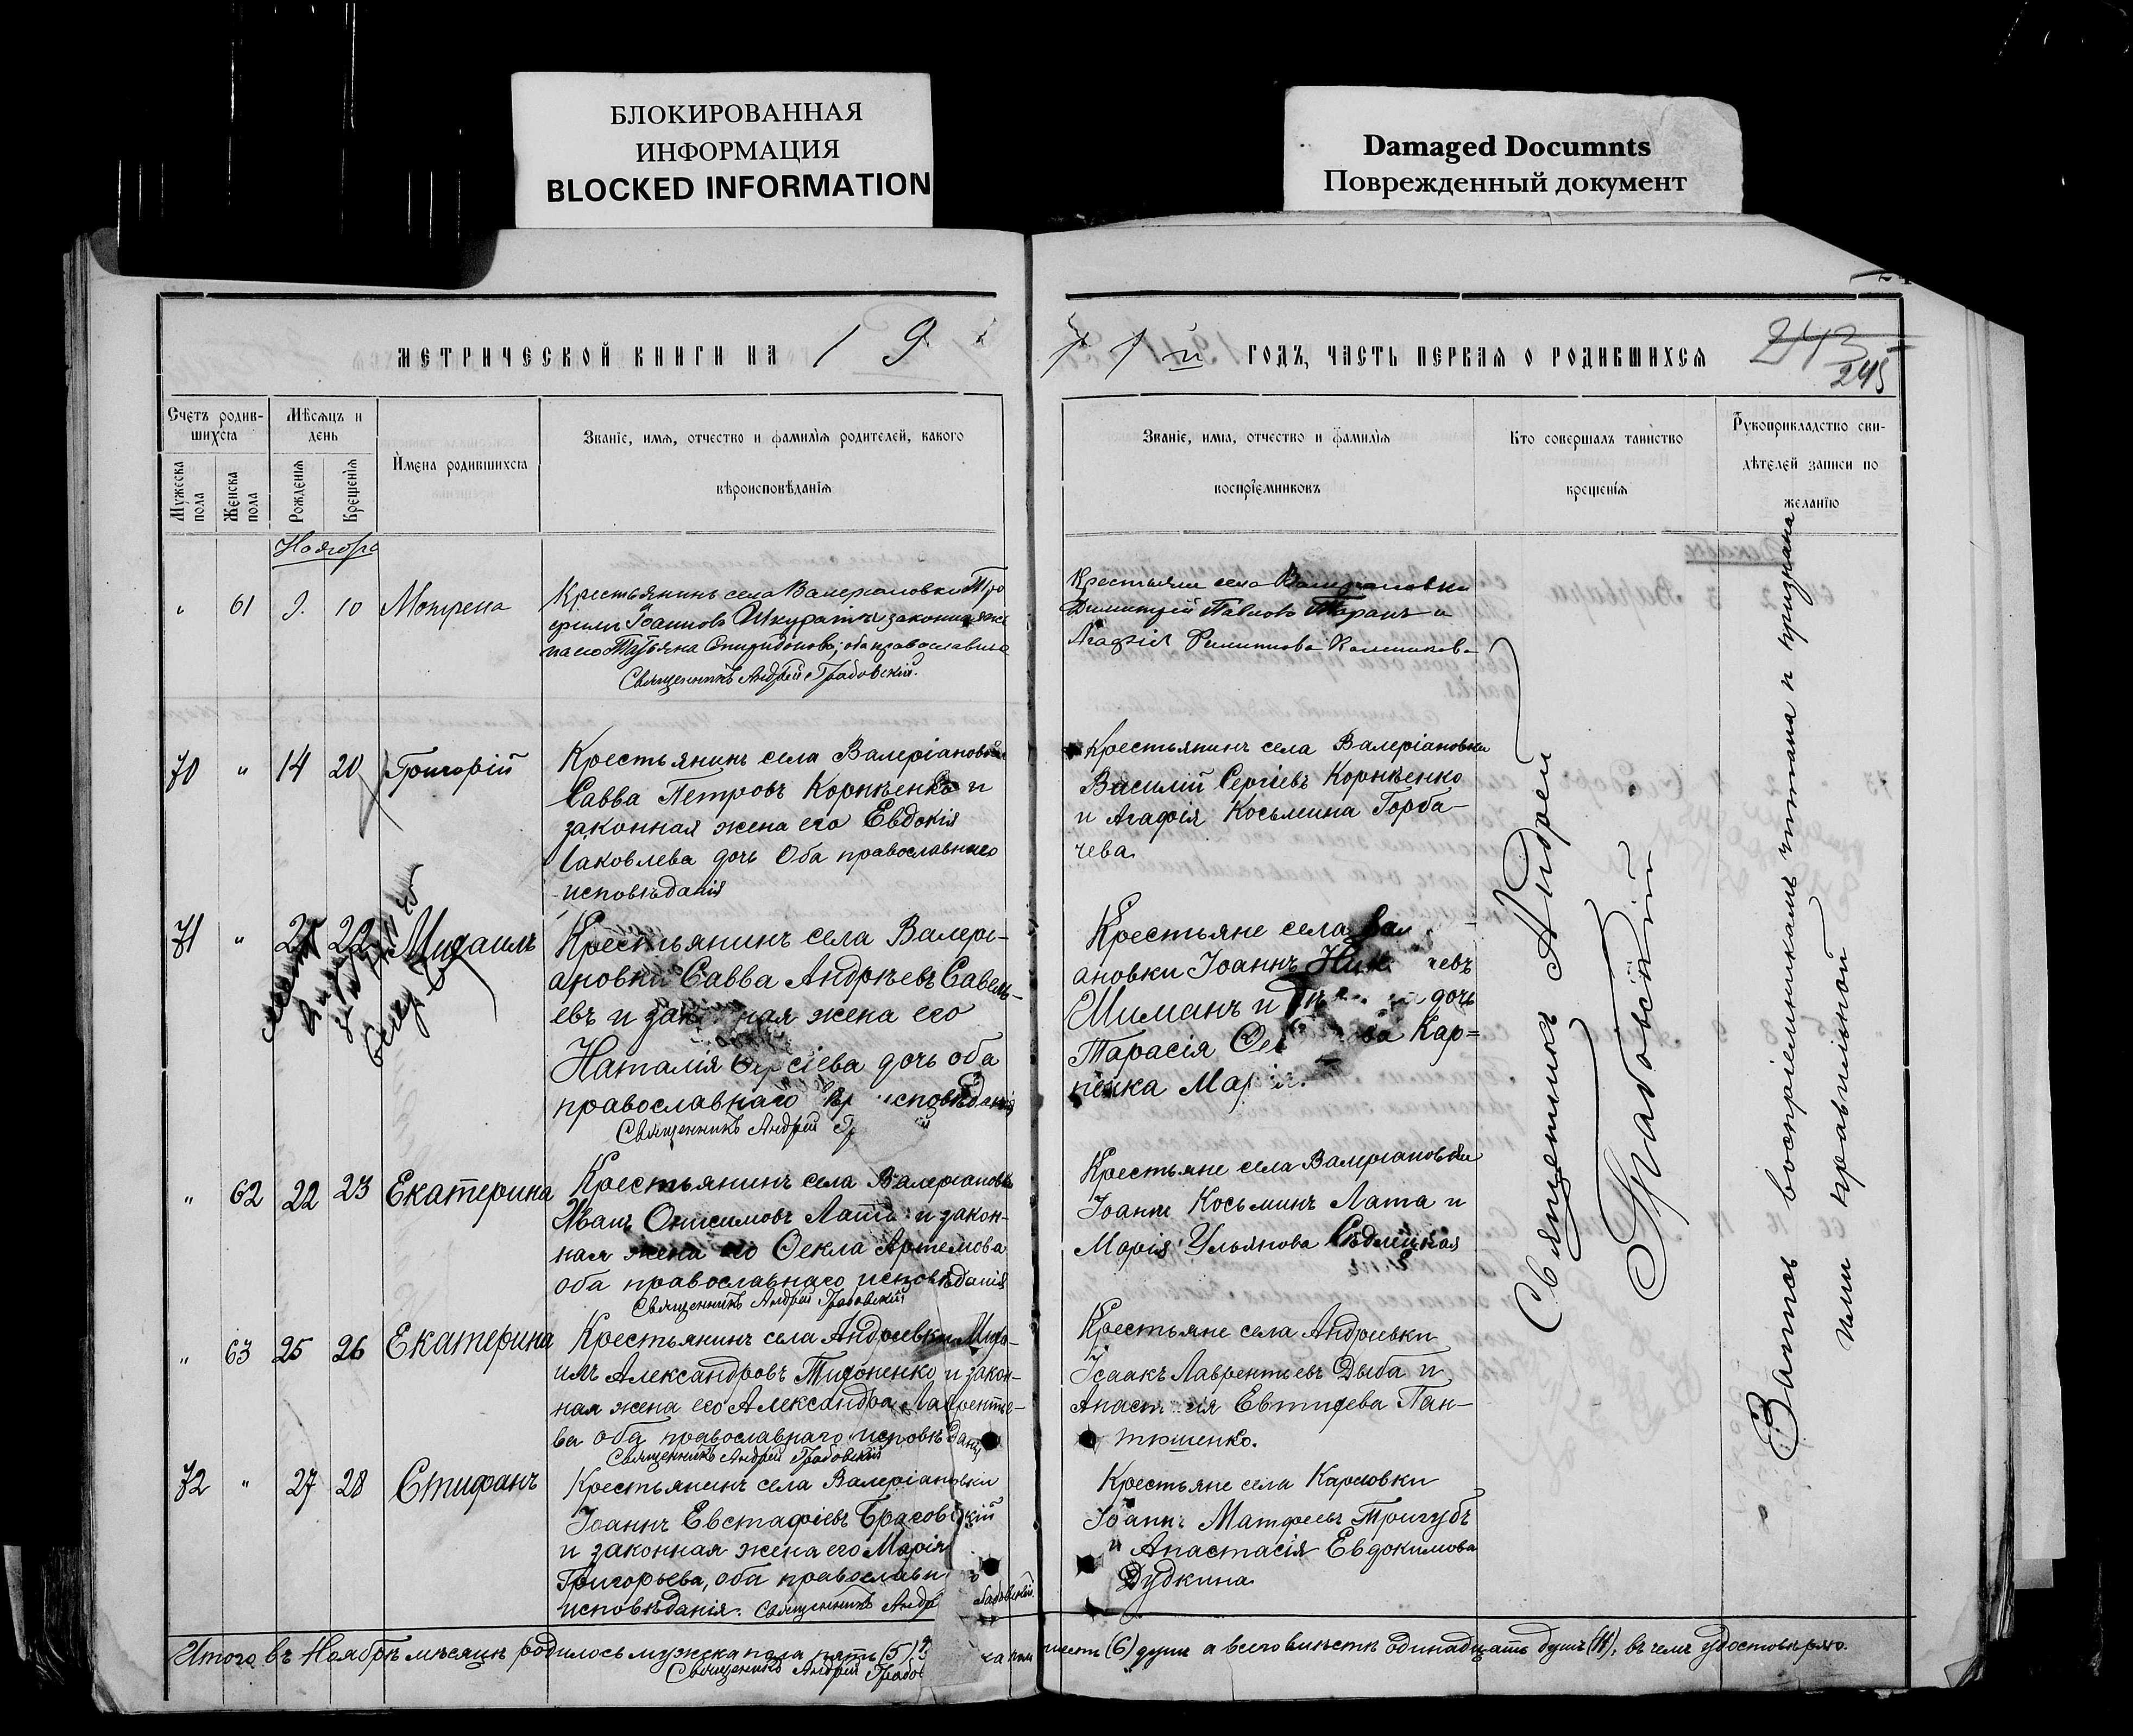 БЛОКИРОВАННАЯ
ИНФОРМАЦИЯ
BLOCKED INFORMATION
Damaged Documnts
Поврежденный документ
МЕТРИЧЕСКОЙ КНИГИ НА 19
11 й ГОДЪ, ЧАСТЬ ПЕРВАЯ О РОДИВШИХСЯ
243
245
Счетъ родив-
шихся
Мѣсяцъ и
день
Имена родившихся
Званіе, имя, отчество и фамилія родителей, какого
вѣроисповѣданія
Мужеска
пола
Женска
пола
Рожденія
Крещенія
Званіе, имя, отчество и фамилія
воспріемниковъ
Кто совершалъ таинство
крещенія
Рукоприкладство сви-
дѣтелей записи по
желанію
Ноября
" 61 9. 10 Мотрена
Крестьянинъ села Валеріановки Тро
фимъ Іоанновъ и законная же
на его Татьяна Спиридонова, оба православные
Священникъ Андрей Грабовскій.
Крестьяне села Валеріановки
Димитрій Павловъ Таранъ и
Агафія Филиппова
70 " 14 20 Григорій
Крестьянинъ села Валеріановки
Савва Петровъ Корнѣенко и
законная жена его Евдокія
Іаковлева дочь Оба православнаго
исповѣданія
Крестьянинъ села Валеріановки
Василій Сергіевъ Корнѣенко
и Агафія Косьмина Горба-
чева.
71 " 21 22 Михаилъ
Крестьянинъ села Валері-
ановки Савва Андрѣевъ Савель-
евъ и ная жена его
Наталія дочь оба
православнаго исповѣданія
Священникъ Андрей
Крестьяне села
ановки Іоаннъ
Шиманъ и дочь
Тарасія Кар=
пенка
" 62 22 23 Екатерина
Крестьянинъ села Валеріановки
Иванъ Онисимовъ Лата и закон-
ная жена его Ѳекла Артемова
оба православнаго исповѣданія
Священникъ Андрей Грабовскій
Крестьяне села Валеріановки
Іоаннъ Косьминъ Лата и
Марія Ульянова
" 63 25 26 Екатерина
Крестьянинъ села Андреевки Миха-
илъ Александровъ Тихоненко и закон-
ная жена его Александра Лаврентье-
ва оба православнаго исповѣданія
Священникъ Андрей Грабовскій
Крестьяне села Андреевки
Ісаакъ Лаврентьевъ Дыба и
Анастасія Евтихіева Пан-
тюшенко.
72 " 27 28 Стефанъ
Крестьянинъ села Валеріановки
Іоаннъ Евстафіевъ
и законная жена его Марія
Григорьева, оба православн
исповѣданія. Священникъ Андр
Крестьяне села Карловки
Іоаннъ Матфеевъ Тригубъ
и Анастасія Евдокимова
Дудкина.
Священникъ Андрей
Грабовскій
Запись воспріемникамъ читана и признана
ими правильной
Итого въ Ноябрѣ мѣсяцѣ родилось мужска пола пять (5)
шесть (6) душъ а всего вмѣстѣ одинадцать душъ (11), въ чемъ удостовѣряю.
Священникъ Андрей